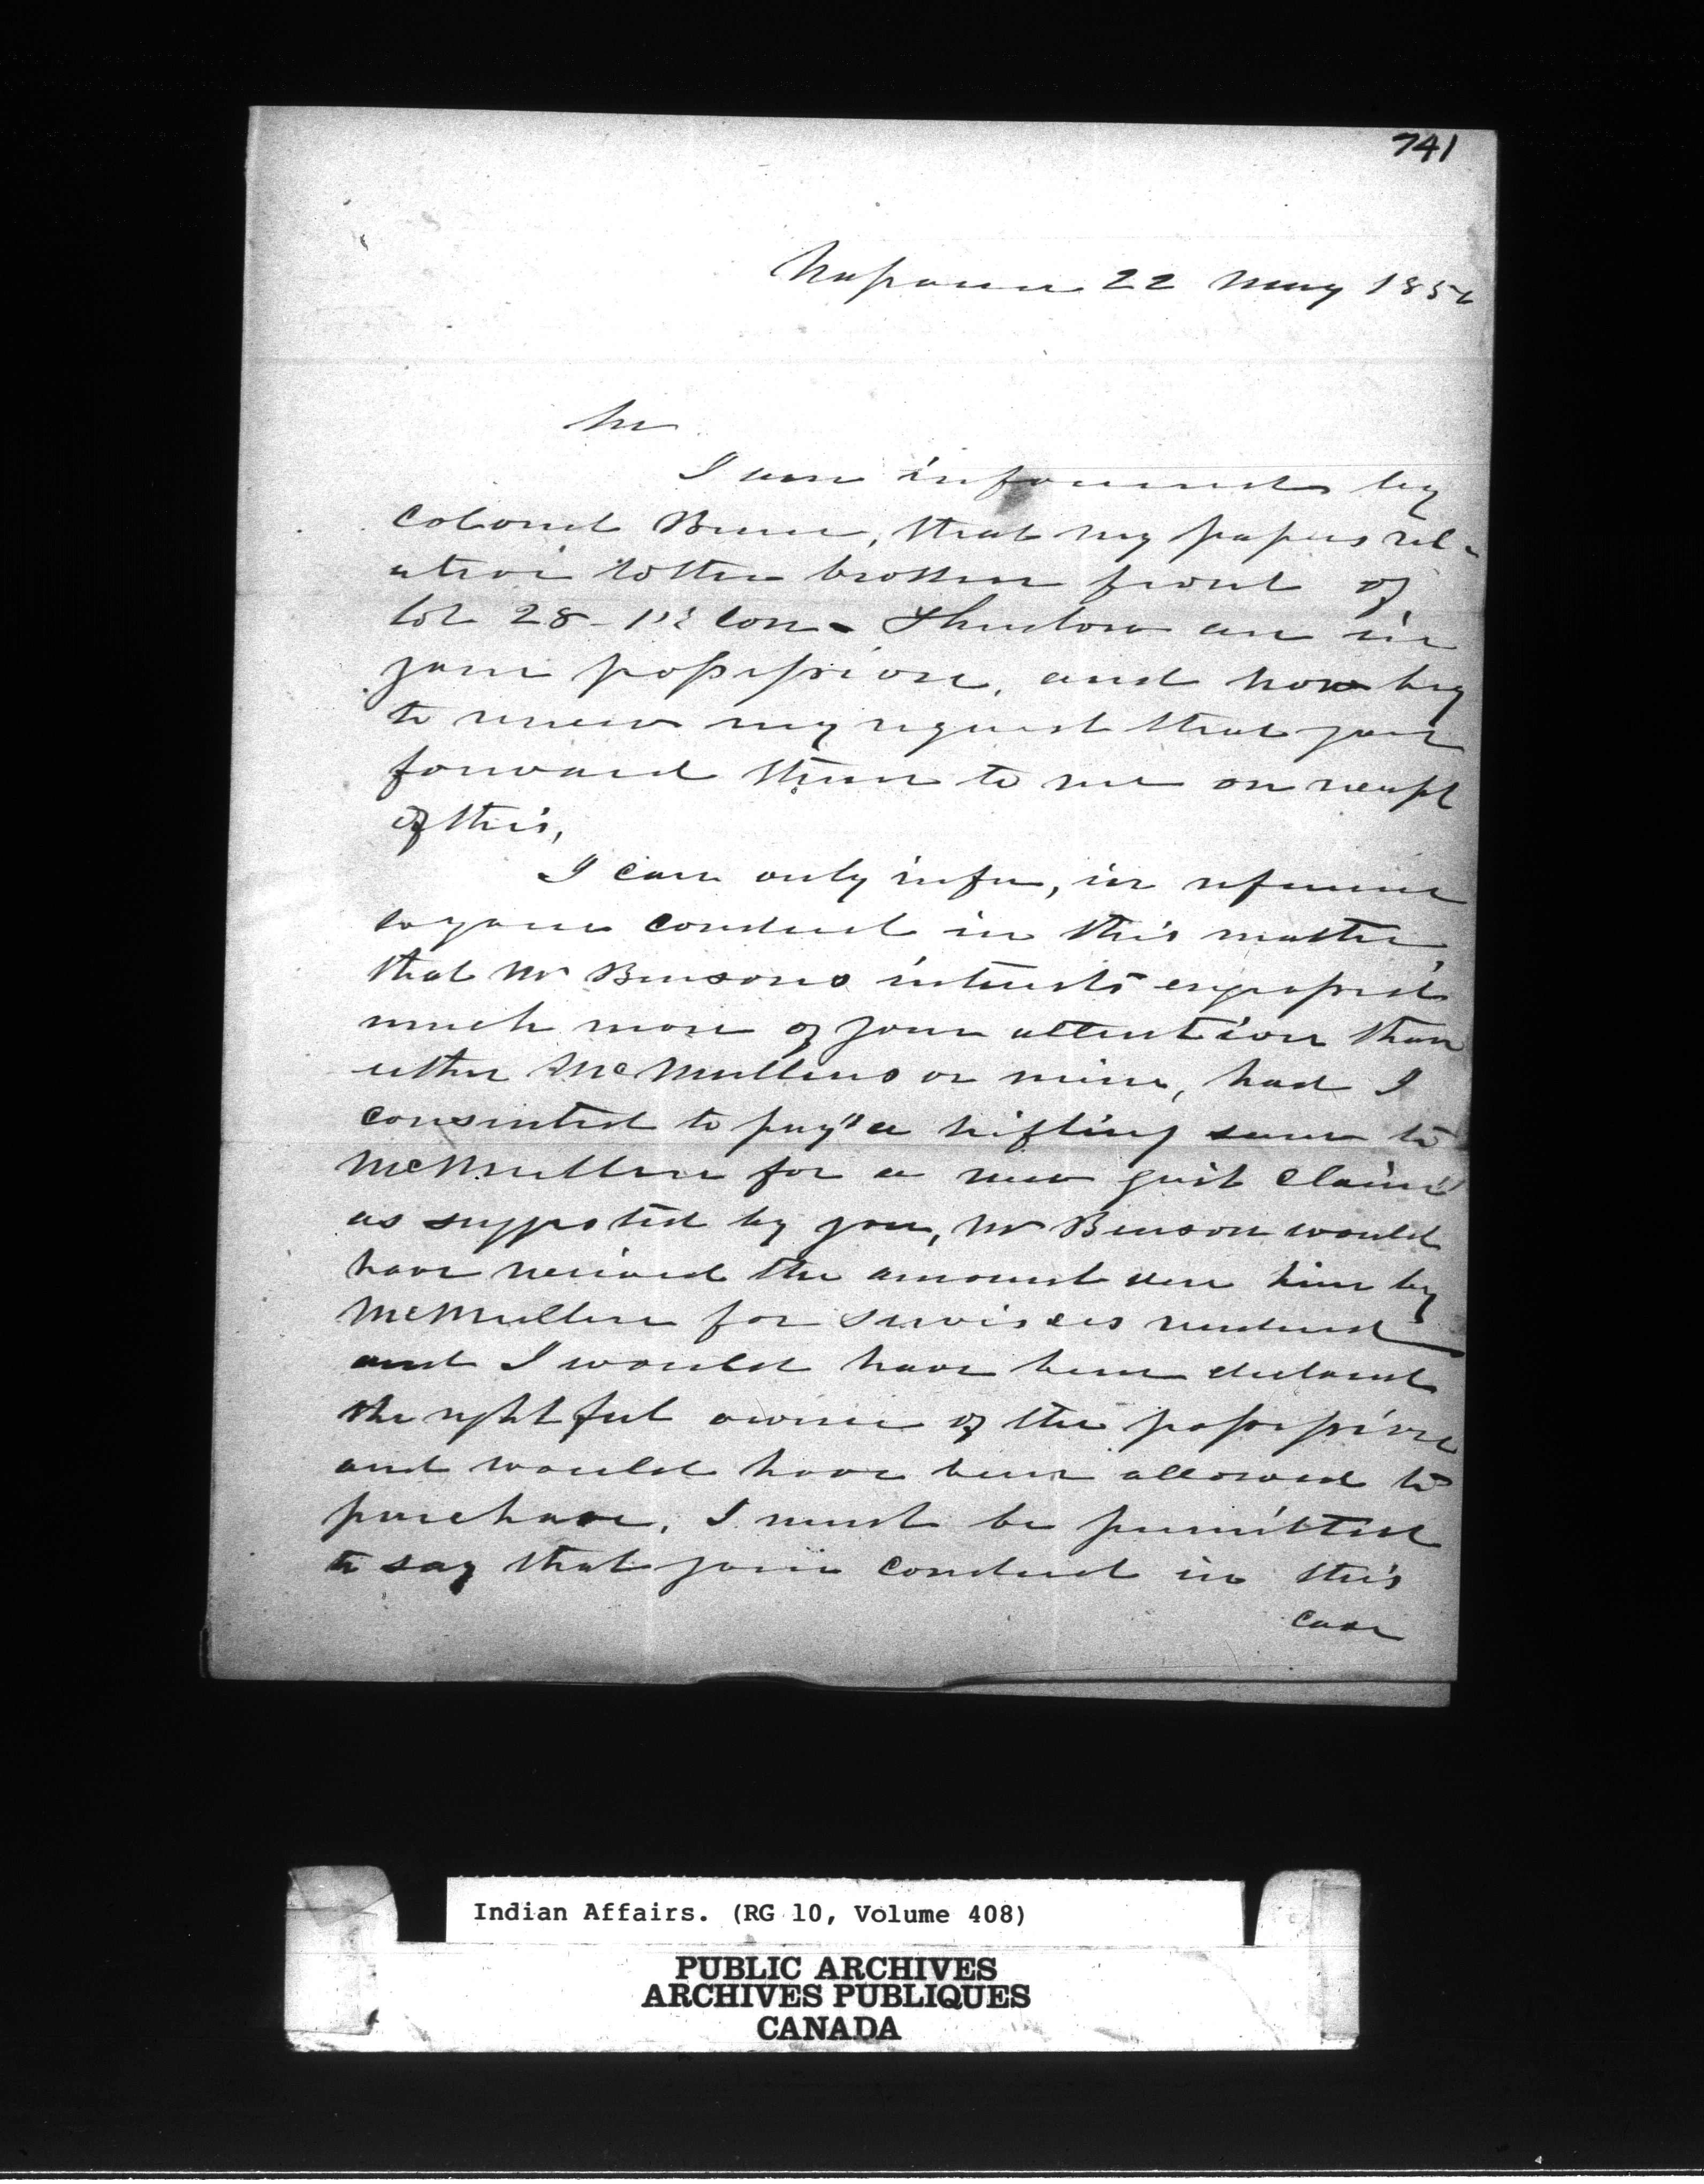 741
Napanee 22 May 185
Sir
I am informed by
Colonel Bruce, that my papers rel-
ative to the broken front of
lot 28 - 1st Con - Thurlow are in
your possession, and now beg
to renew my request that you
forward them to me on receipt
of this,
I can only infer, in reference
to your conduct in this matter,
that Mr Bensons interests engrossed
much more of your attention than
either McMullens or mine, had I
consented to pay "a trifling sum to
McMullen for a new quit claim"
as suggested by you, Mr Benson would
have received the amount due him by
McMullen for services rendered
and I would have been declared
the rightful owner of the possession
and would have been allowed to
purchase. I must be permitted
to say that your conduct in this
case
Indian Affairs. (RG 10, Volume 408)
PUBLIC ARCHIVES
ARCHIVES PUBLIQUES
CANADA